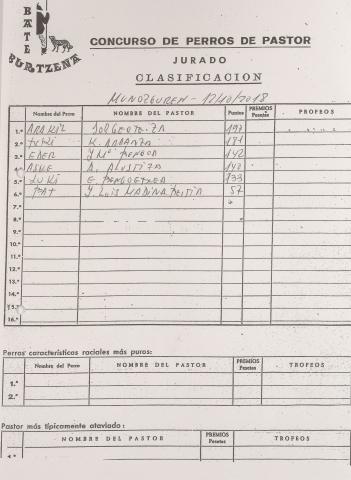 BATE
BURTZENA
CONCURSO DE PERROS DE PASTOR
JURADO
CLASIFICACION
MUNOZGUREN - 12/10/2018
Nombre del Perro NOMBRE DEL PASTOR Puntos PREMIOS Pesetas TROFEOS
1.º ARAKIL 197
2.º K. 181
3.º EDER 142
4.º A. ALUSTIZA
5.º E. BENGOETXEA 133
6.º J. LUIS 57
7.º
8.º
9.º
10.º
11.º
12.º
13.º
14.º
15.º
16.º
Perros característicos raciales más puros:
Nombre del Perro NOMBRE DEL PASTOR PREMIOS Pesetas TROFEOS
1.º
2.º
Pastor más típicamente ataviado:
NOMBRE DEL PASTOR PREMIOS Pesetas TROFEOS